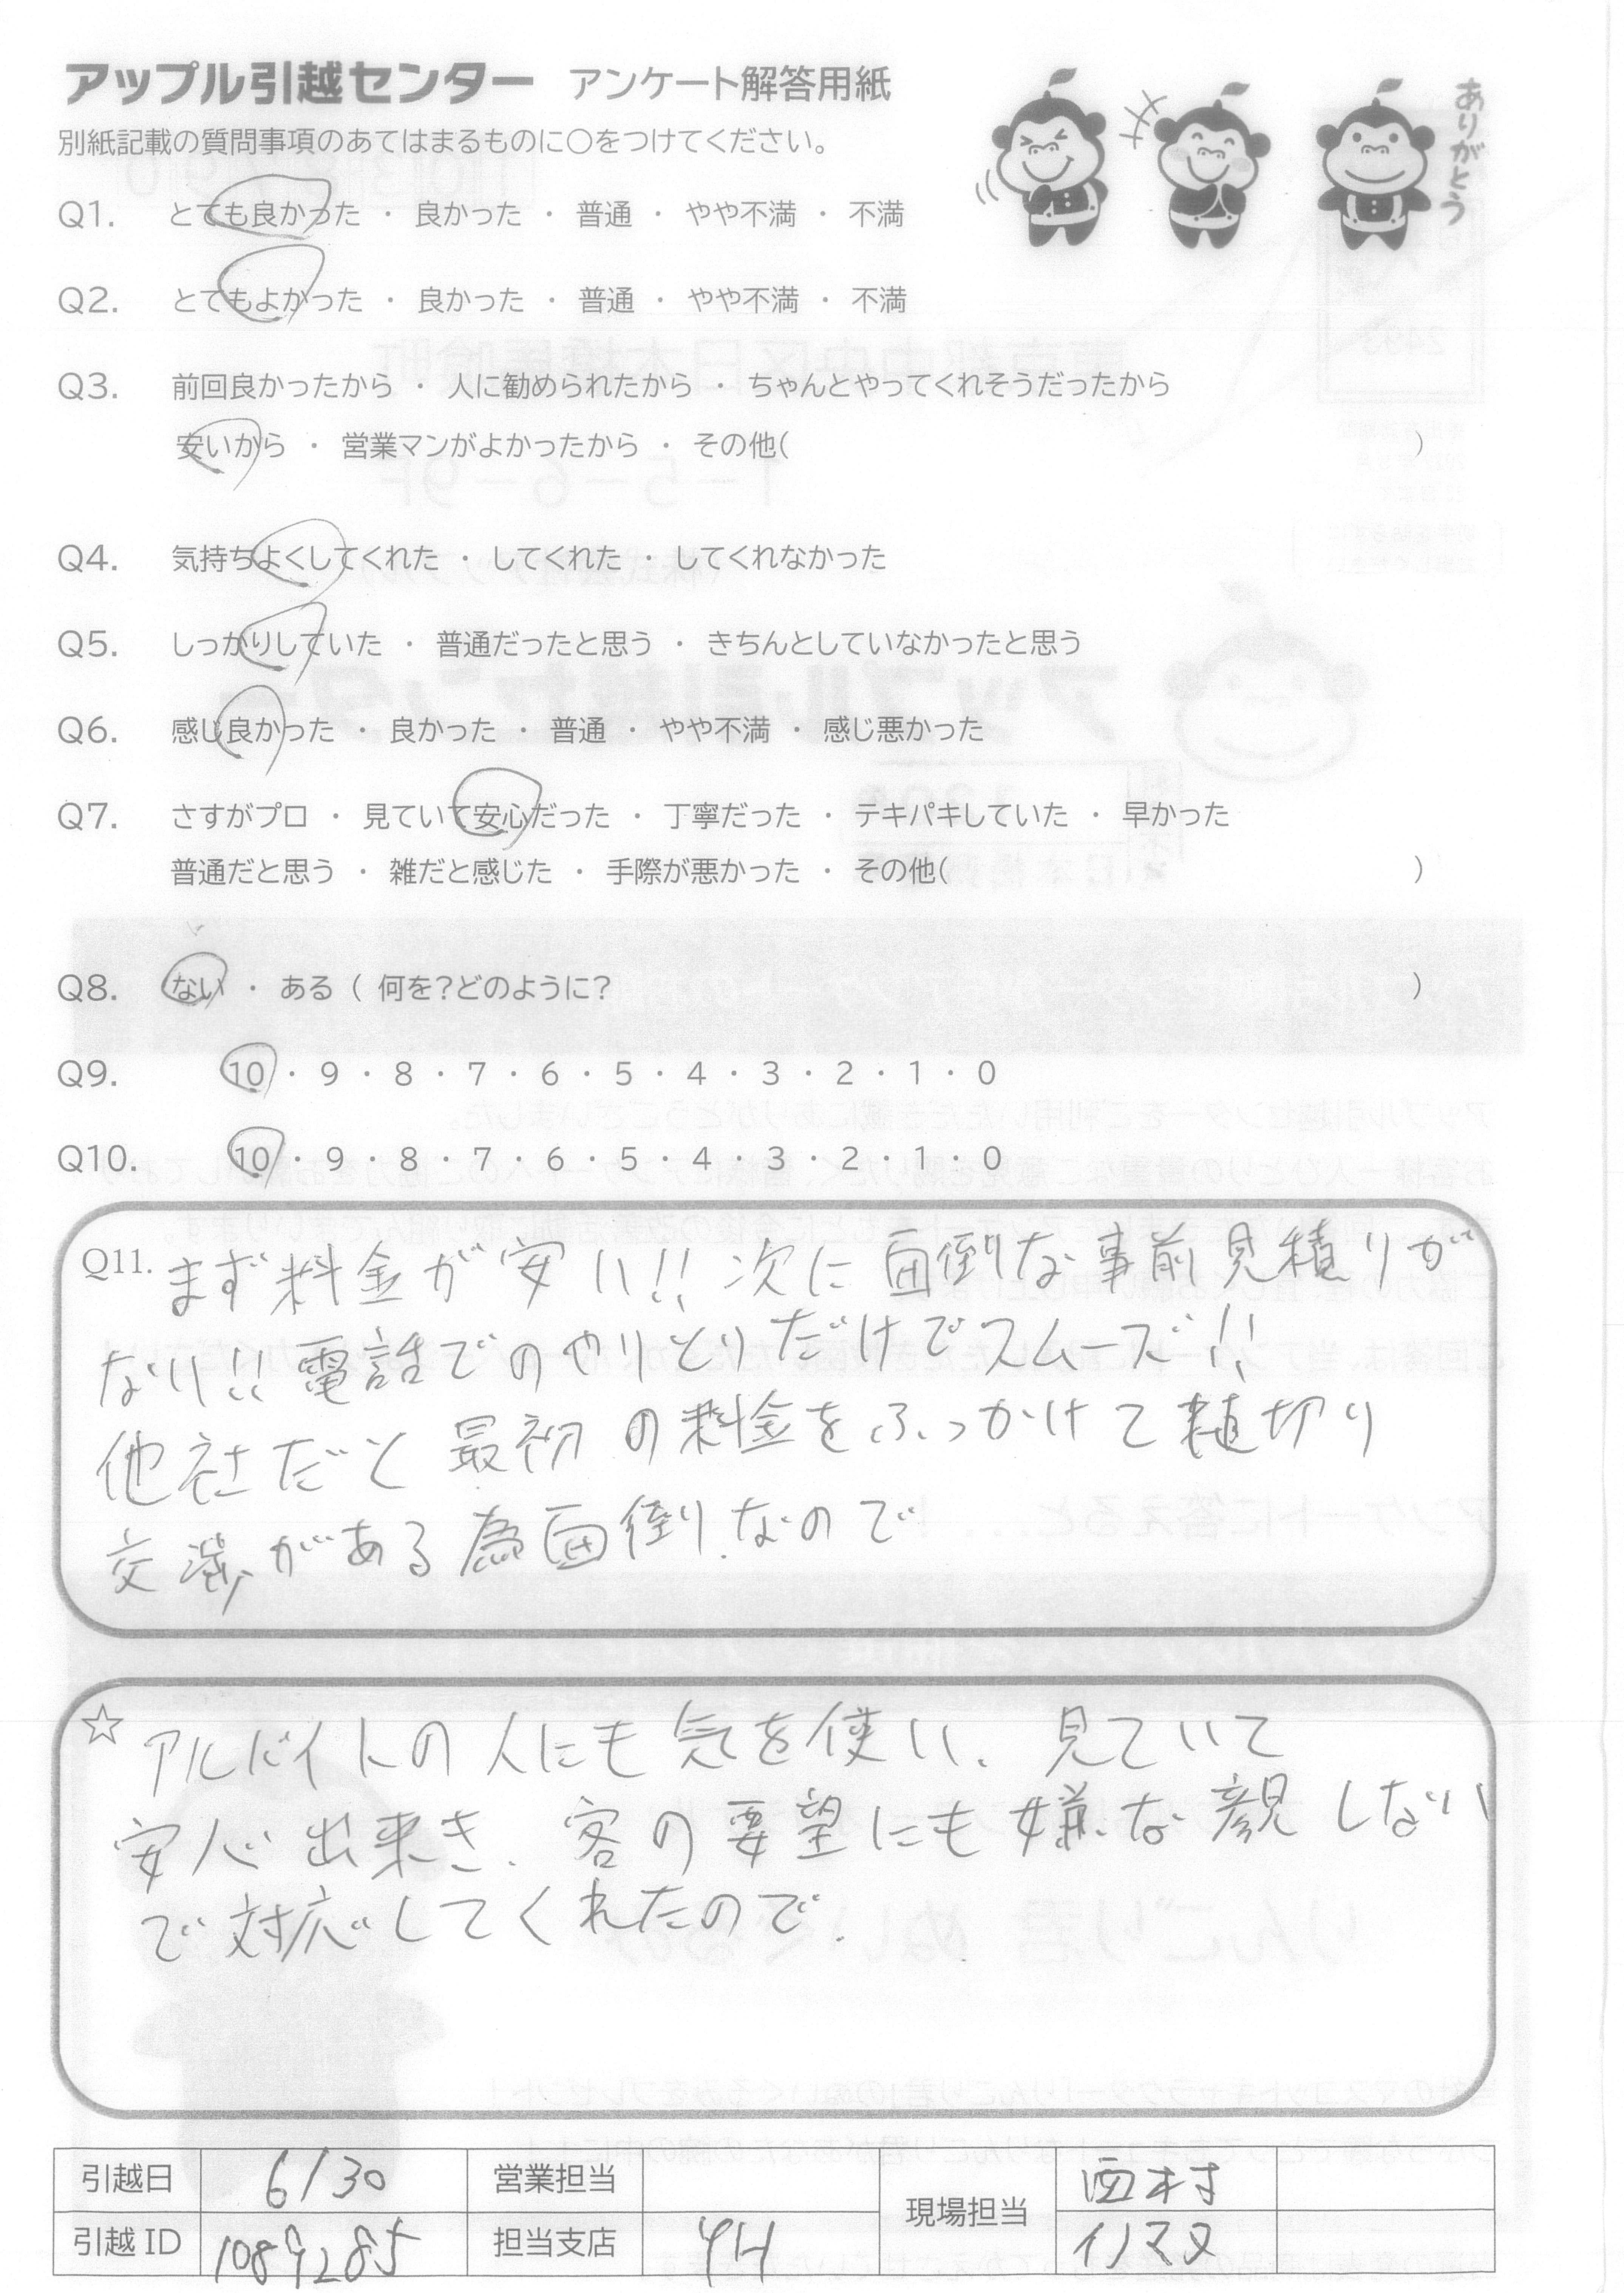 アップル引越センター アンケート解答用紙
ありがとう
別紙記載の質問事項のあてはまるものに○をつけてください。
Q1. とても良かった ・ 良かった ・ 普通 ・ やや不満 ・ 不満
Q2. とてもよかった ・ 良かった ・ 普通 ・ やや不満 ・ 不満
Q3. 前回良かったから ・ 人に勧められたから ・ ちゃんとやってくれそうだったから
安いから ・ 営業マンがよかったから ・ その他( )
Q4. 気持ちよくしてくれた ・ してくれた ・ してくれなかった
Q5. しっかりしていた ・ 普通だったと思う ・ きちんとしていなかったと思う
Q6. 感じ良かった ・ 良かった ・ 普通 ・ やや不満 ・ 感じ悪かった
Q7. さすがプロ ・ 見ていて安心だった ・ 丁寧だった ・ テキパキしていた ・ 早かった
普通だと思う ・ 雑だと感じた ・ 手際が悪かった ・ その他( )
Q8. ない ・ ある ( 何を?どのように? )
Q9. 10 ・ 9 ・ 8 ・ 7 ・ 6 ・ 5 ・ 4 ・ 3 ・ 2 ・ 1 ・ 0
Q10. 10 ・ 9 ・ 8 ・ 7 ・ 6 ・ 5 ・ 4 ・ 3 ・ 2 ・ 1 ・ 0
Q11. まず料金が安い!! 次に面倒な事前見積りが
ない!! 電話でのやりとりだけでスムーズ!!
他社だと最初の料金をふっかけて値切り
交渉がある為面倒なので
☆ アルバイトの人にも気を使い、見ていて
安心出来き、客の要望にも嫌な顔しない
で対応してくれたので。
引越日 6/30 営業担当 現場担当 西村
引越ID 1089285 担当支店 YH イノマタ